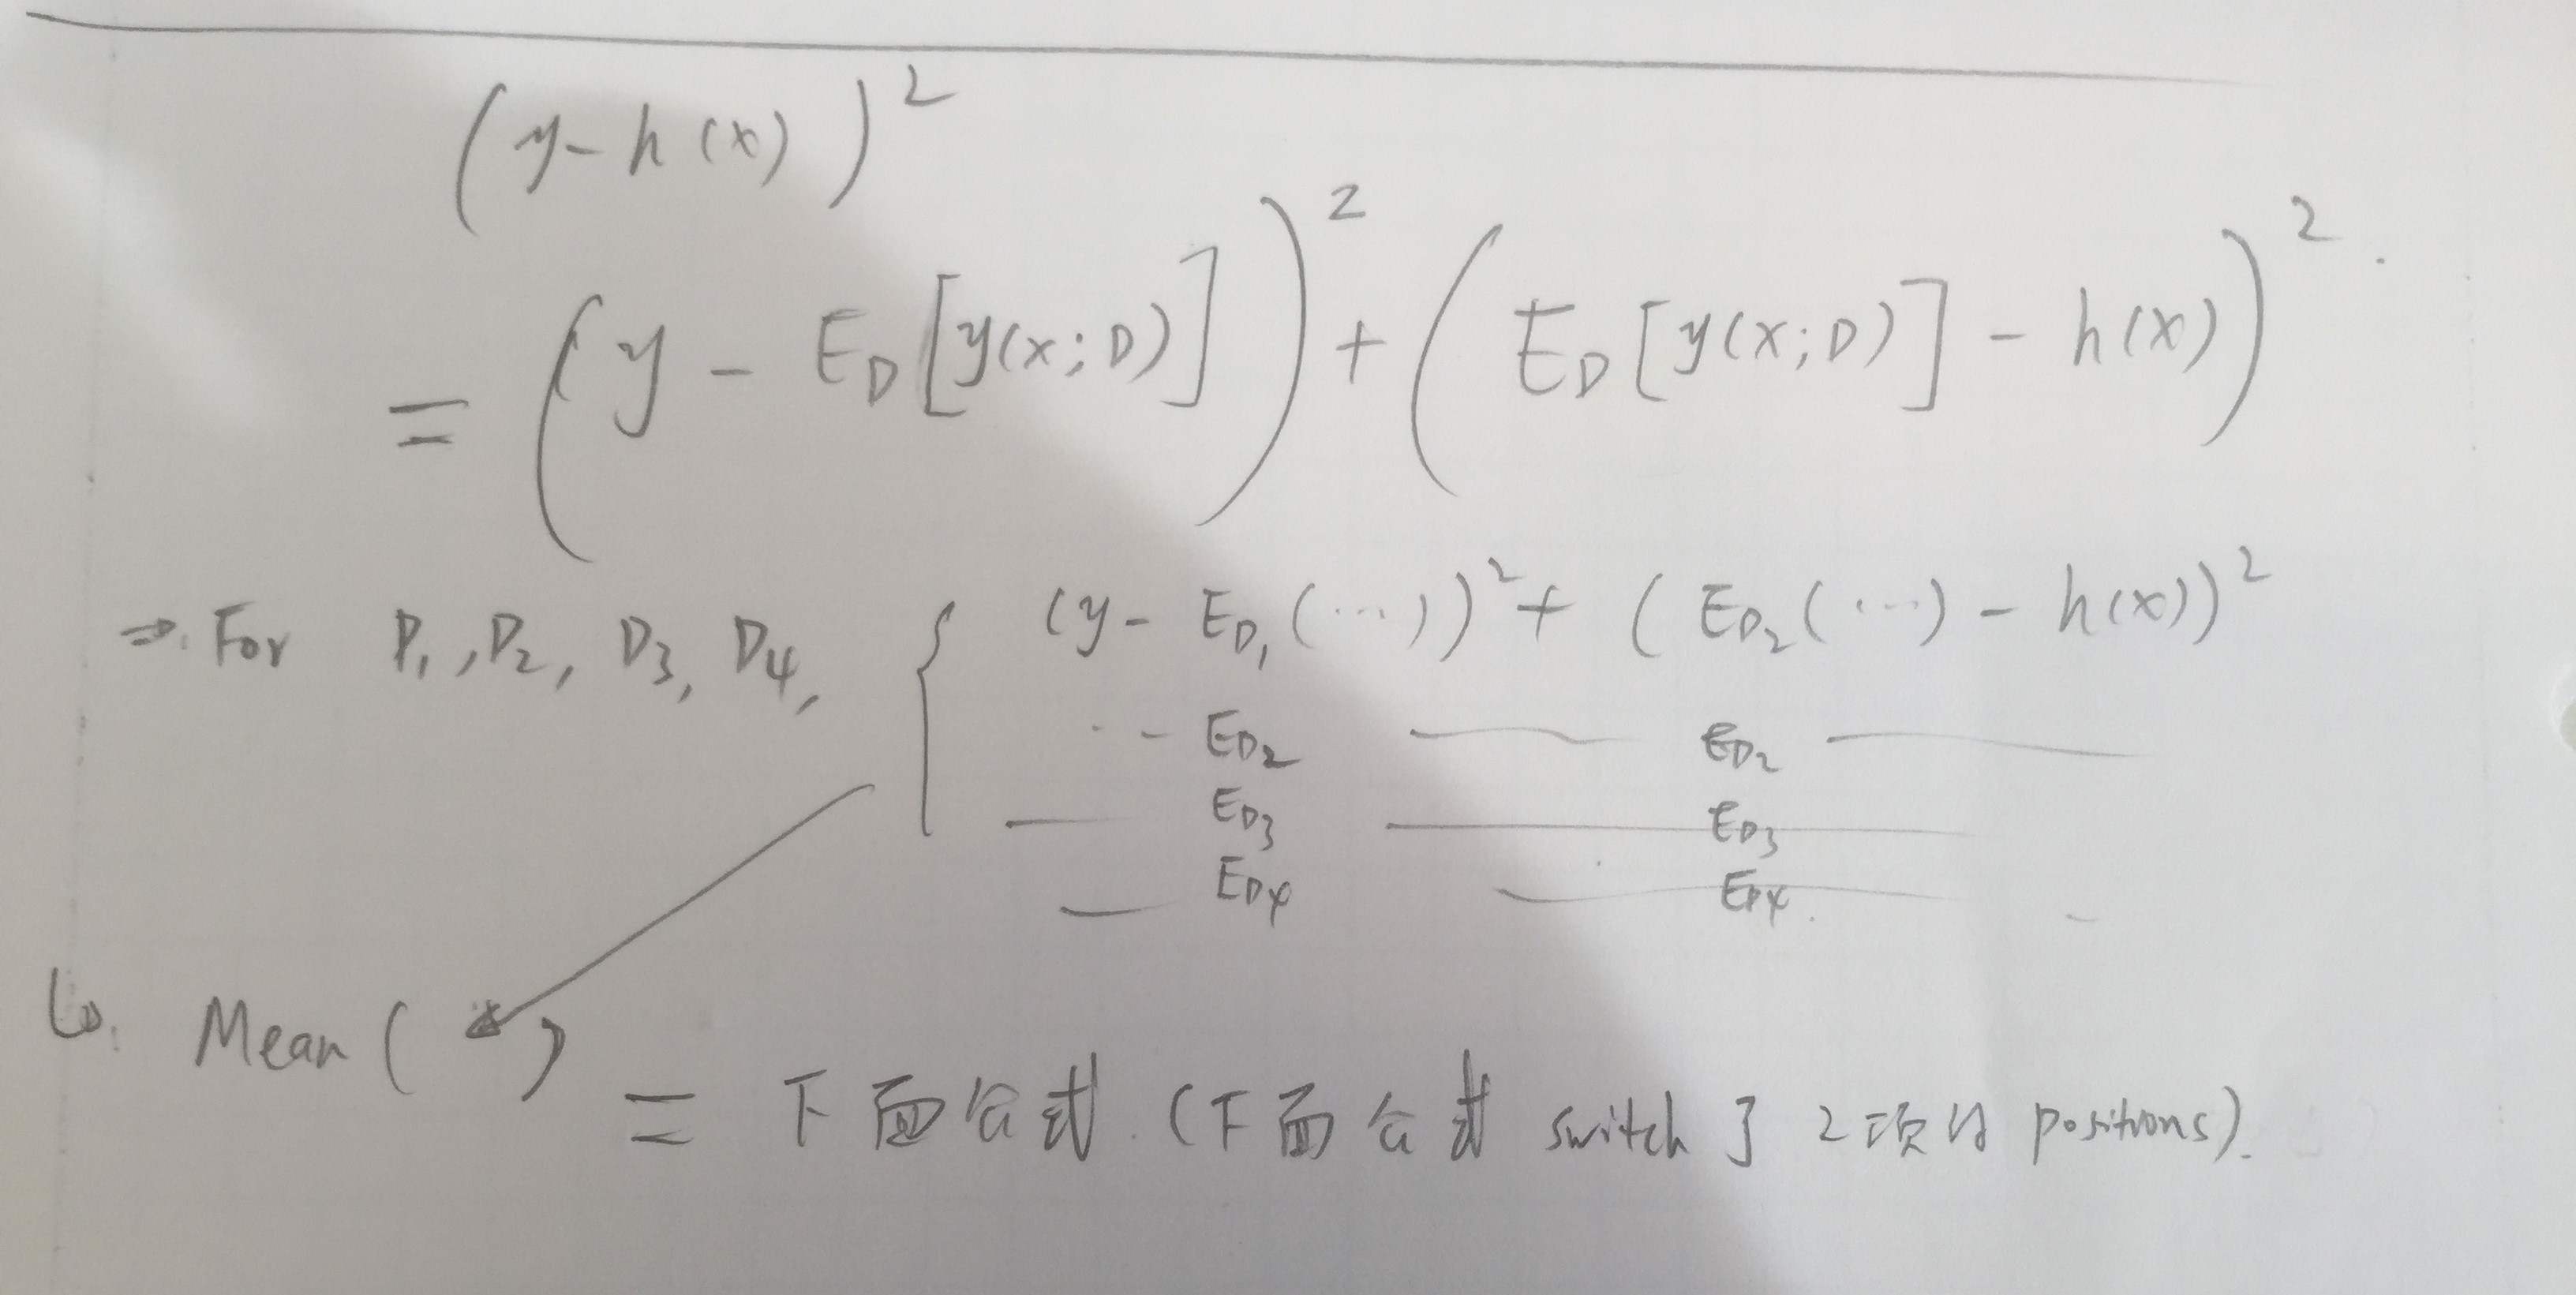 (y - h(x))²
= (y - E_D[y(x;D)])² + (E_D[y(x;D)] - h(x))².
⇒ For D₁, D₂, D₃, D₄, { (y - E_D₁(...))² + (E_D₂(...) - h(x))²
-- E_D₂ —— E_D₂ ——
— E_D₃ —— E_D₃ ——
— E_D₄ —— E_D₄. —
↳ Mean( ) = 下面公式.(下面公式 switch了 2项的 positions).